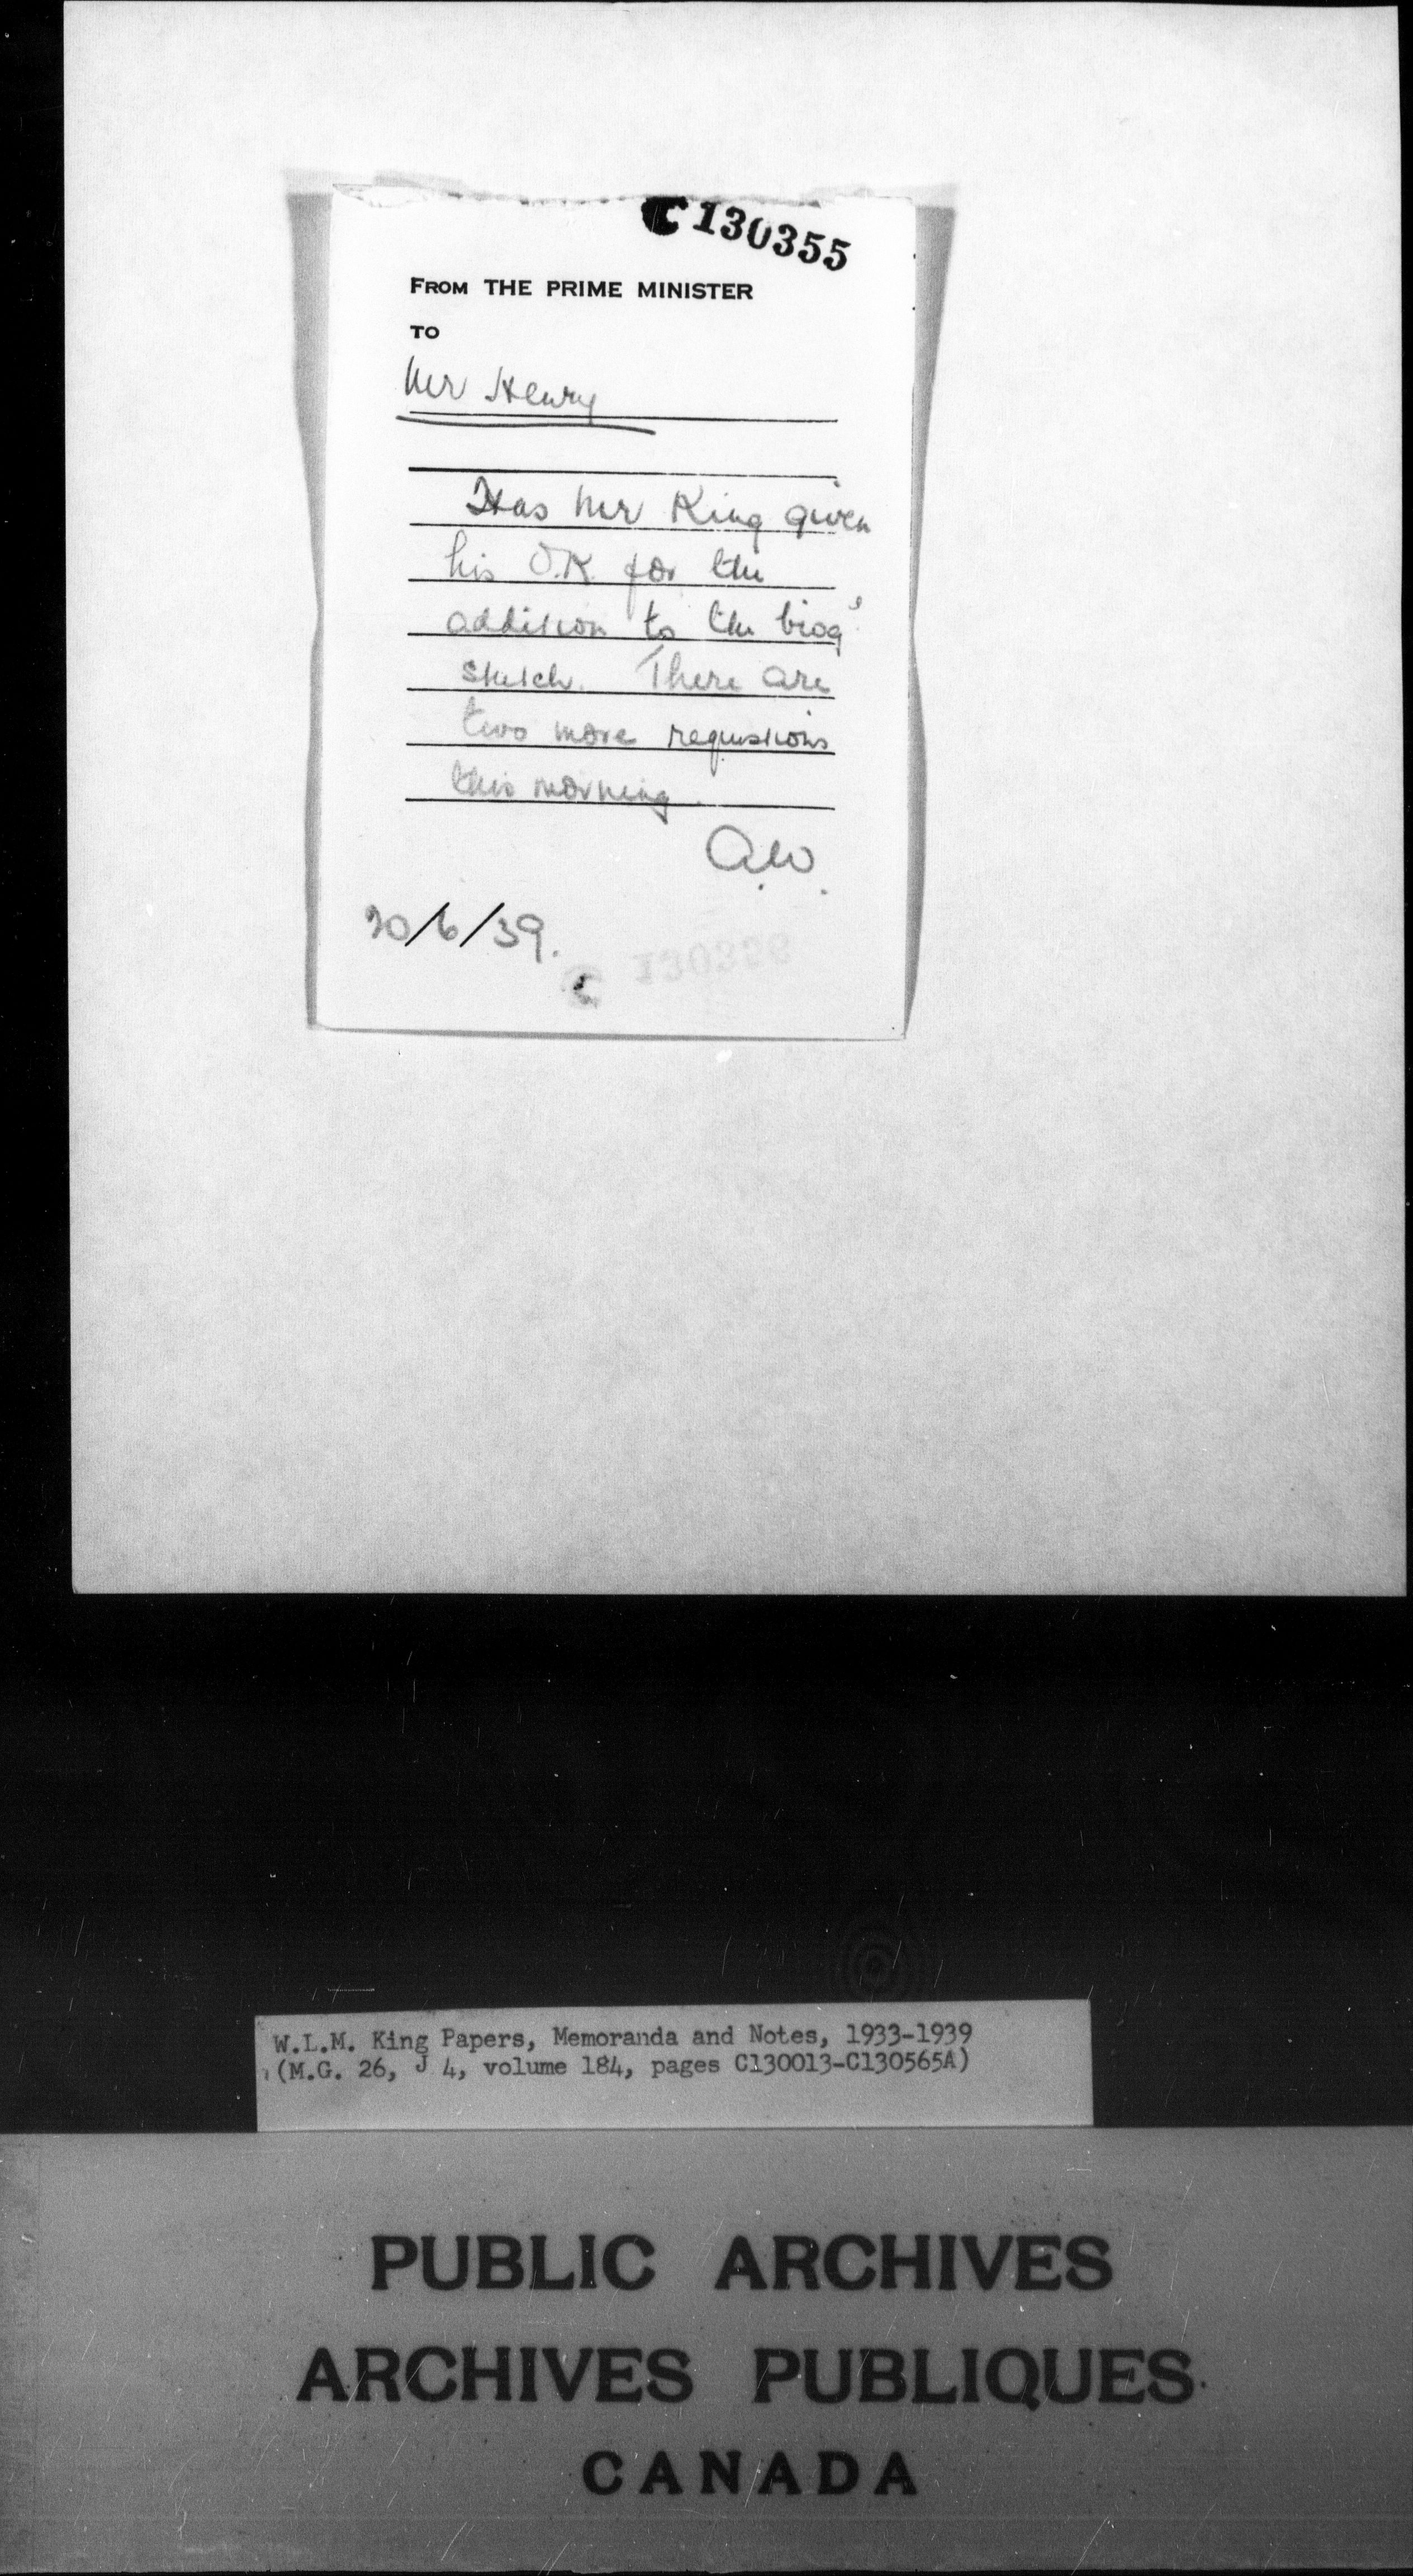 C130355
FROM THE PRIME MINISTER
TO
Mr Henry
Has Mr King given
his O.K. for the
addition to the biog'
sketch. There are
two more requisitions
this morning.
20/6/39.
C 130356
W.L.M. King Papers, Memoranda and Notes, 1933-1939
(M.G. 26, J 4, volume 184, pages C130013-C130565A)
PUBLIC ARCHIVES
ARCHIVES PUBLIQUES
CANADA